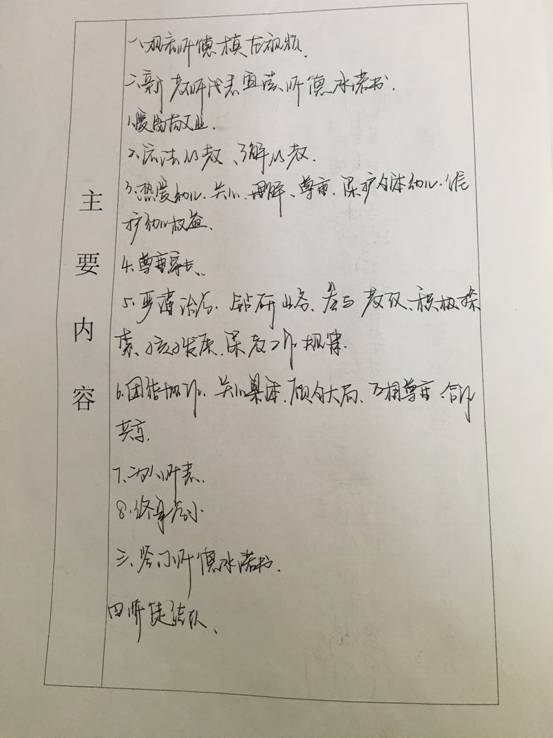 主要内容
一、观看师德模范视频.
二、新教师代表宣读师德承诺书.
1.爱岗敬业.
2.依法从教、了解从教.
3.热爱幼儿.关心、理解、尊重.保护全体幼儿.维
护幼儿权益.
4.尊重家长、
5.严谨治学.钻研业务.参与教研.积极探
索、幼教发展、保教工作规律.
6.团结协作.关心集体、顾全大局、互相尊重.合作
共享.
7.为人师表.
8.终身学习
三、签订师德承诺书.
四.师徒结队、